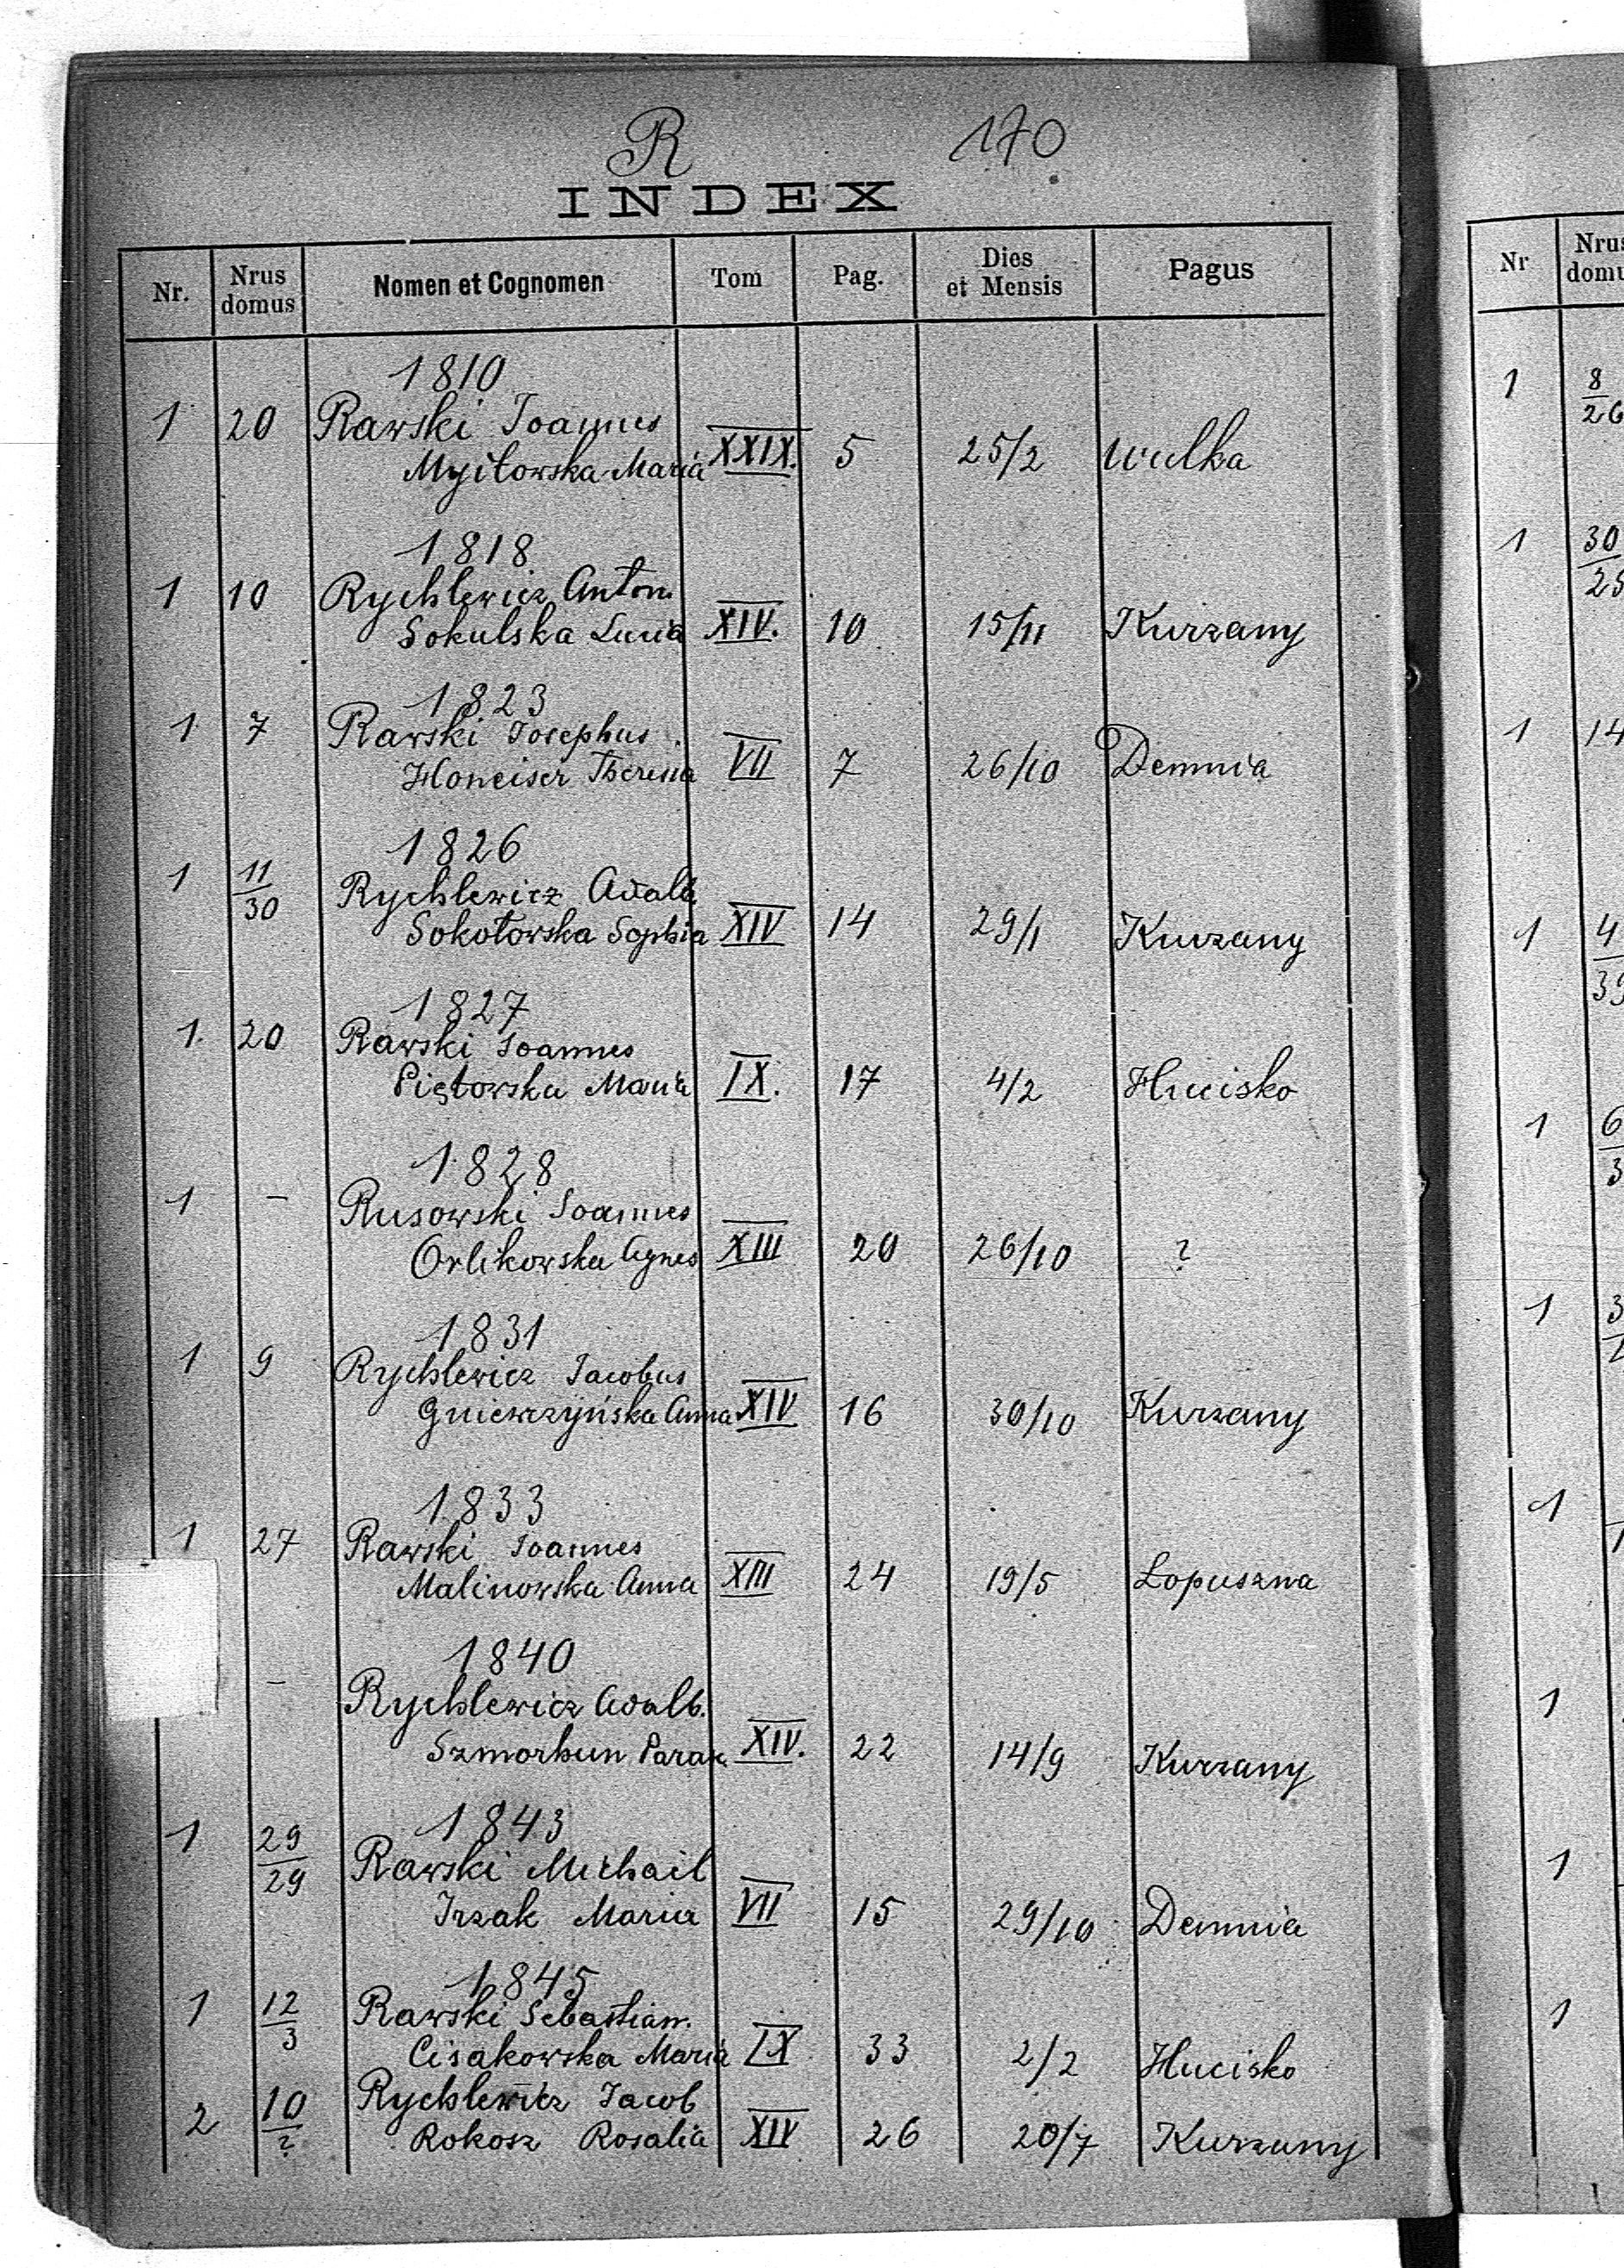 R 170
INDEX
Nr. Nrus domus Nomen et Cognomen Tom Pag. Dies et Mensis Pagus
1810
1 20 Rawski Joannes
Myitowska Maria XXIX. 5 25/2 Wulka
1818
1 10 Rychlewicz Anton.
Sokulska Lucia XIV. 10 15/11 Kurzany
1823
1 7 Rawski Josephus
Honeiser Theresia VII 7 26/10 Demnia
1826
1 11/30 Rychlewicz Adalb.
Sokołowska Sophia XIV 14 29/1 Kurzany
1827
1. 20 Rawski Joannes
Piętowska Maria IX. 17 4/2 Hucisko
1828
1 – Rusowski Joannes
Orlikowska Agnes XIII 20 26/10 ?
1831
1 9 Rychlewicz Jacobus
Gniewrzyńska Anna XIV 16 30/10 Kurzany
1833
1 27 Rawski Joannes
Malinowska Anna XIII 24 19/5 Lopuszna
1840
– Rychlewicz Adalb.
Szmorhun Parak XIV. 22 14/9 Kurzany
1843
1 29/29 Rawski Michail
Irzak Maria VII 15 29/10 Demnia
1845
1 12/3 Rawski Sebastian.
Cisakowska Maria IX 33 2/2 Hucisko
2 10/? Rychlewicz Jacob
Rokosz Rosalia XIV 26 20/7 Kurzany
Nr Nrus domu
1 8/26
1 30/25
1 14
1 4/39
1 6/3
1 3
1
1
1
1